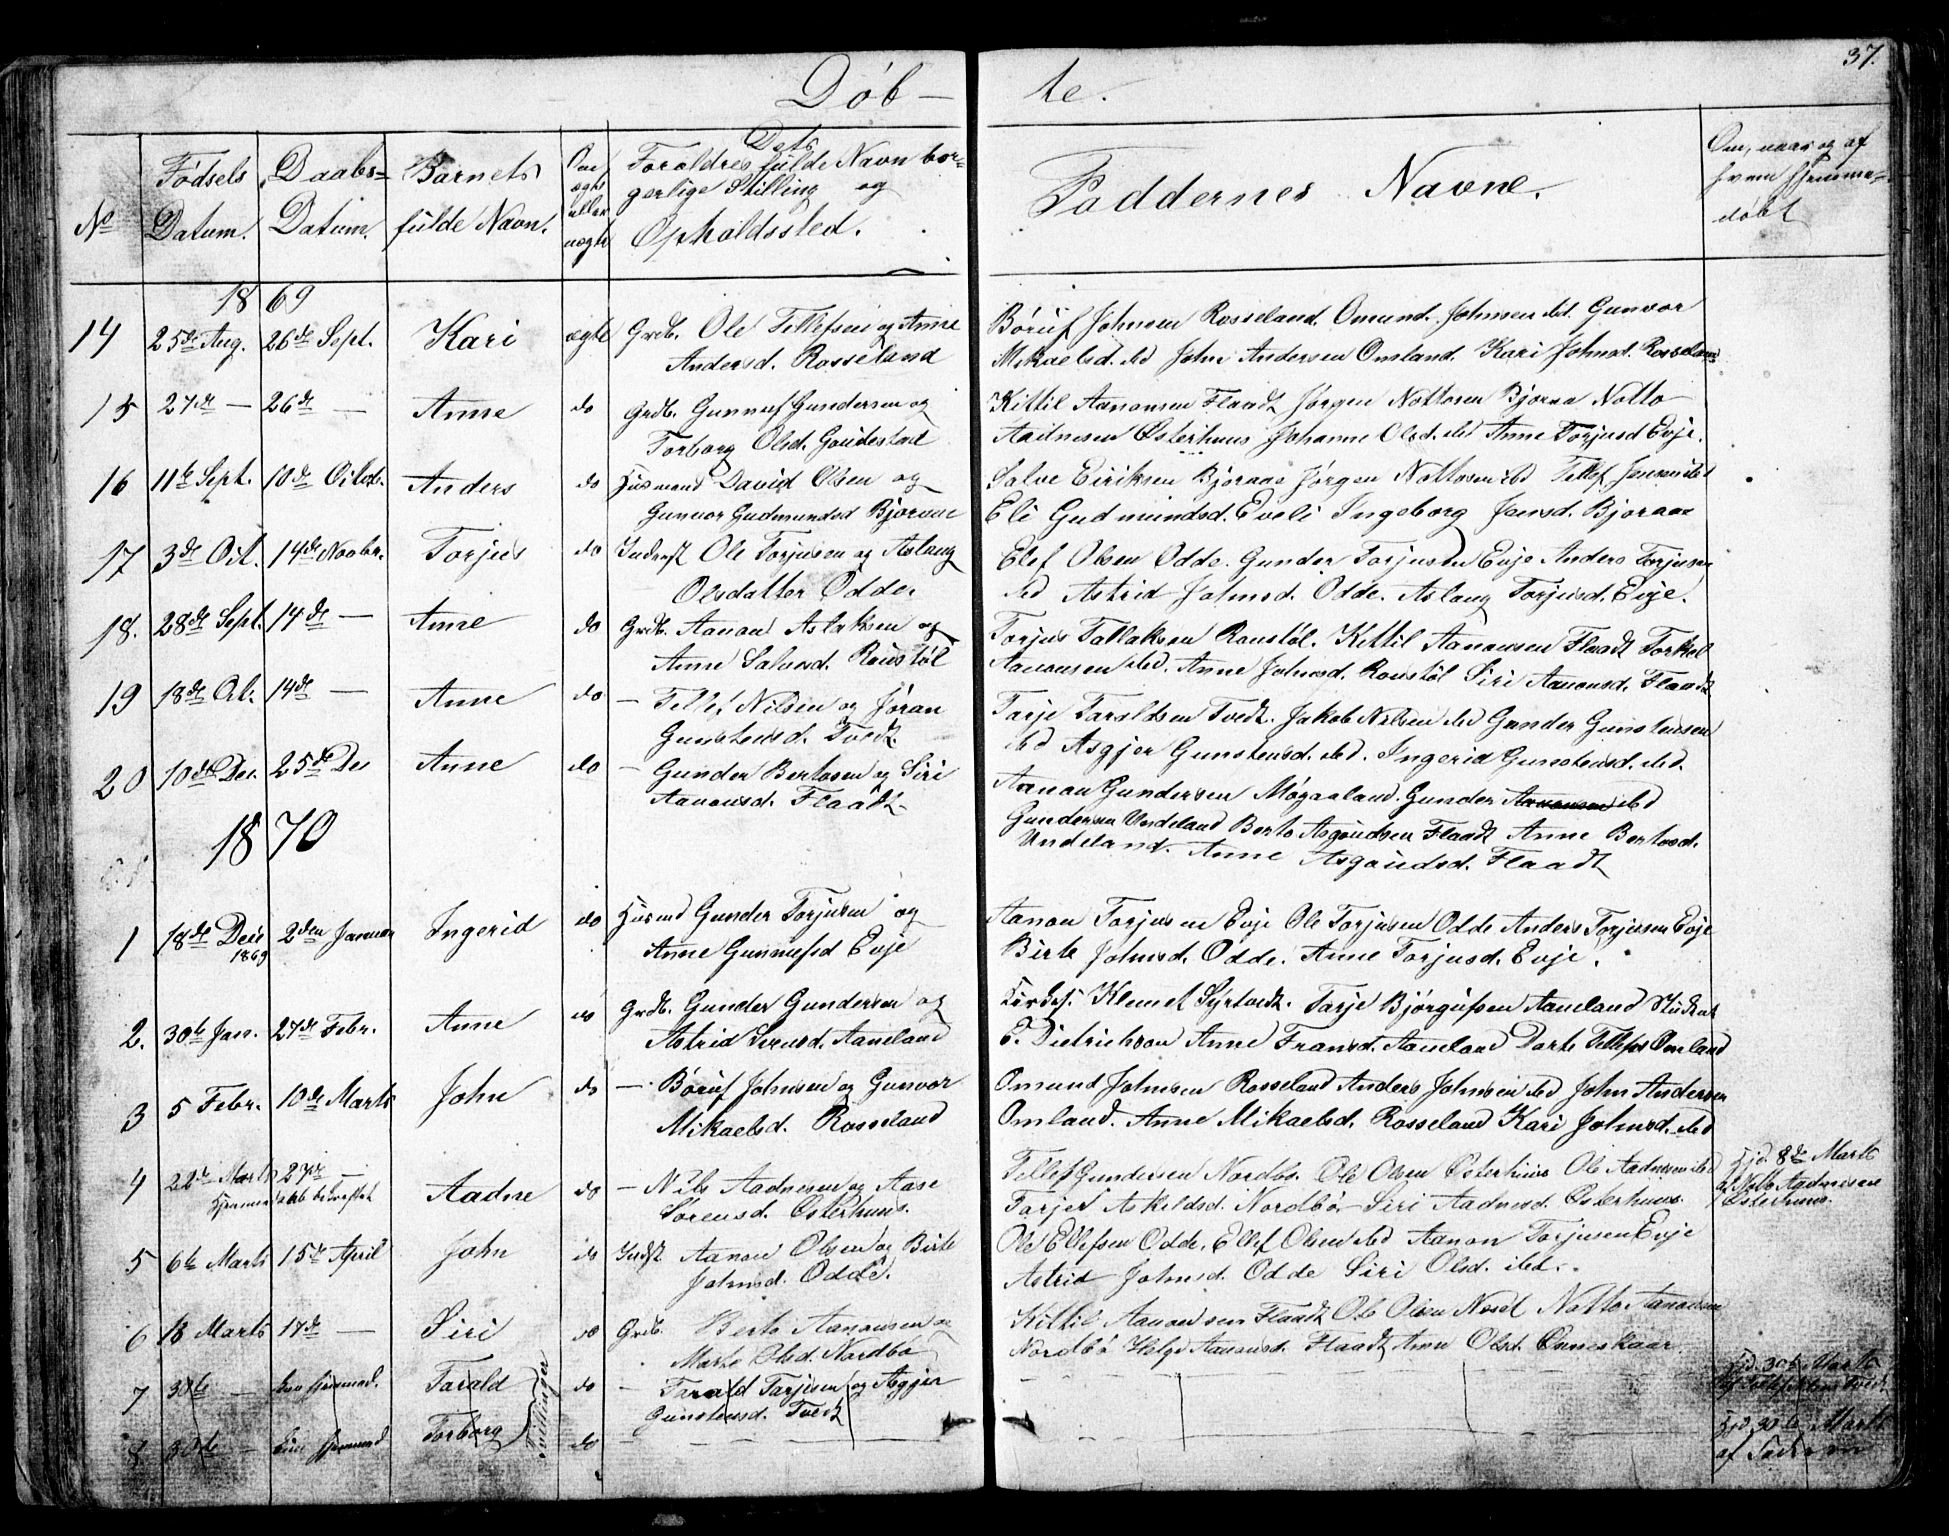 37.
Döb — te.
No
Fødsels Datum.
Daabs- Datum.
Barnets fulde Navn.
Om ægte eller uægte
Dets Forældres fulde Navn bor-
gerlige Stilling og
Opholdssted.
Faddernes Navne.
Om, naar og af
hvem hjemme-
døbt
1869
14 25de Aug. 26de Sept. Kari ægte Grdb. Ole Tellefsen og Anne
Andersd. Rosseland
Børuf Johnsen Rosseland. Omund Johnsen ibd. Gunvor
Mikaelsd. ibd John Andersen Omland. Kari Johnsd. Rosseland
15 27de — 26de — Anne do Grdb. Gunnuf Gundersen og
Torborg Olsd.
Kittil Aanonsen Flaadt Jørgen Nottosen Bjoraa Notto
Aadnesen Østerhuus Johanne Olsd. ibd Anne Torjusd Evje.
16 11te Sept. 10de Octob. Anders do Husmand David Olsen og
Gunvor Gudmundsd Bjoraae
Salve Eiriksen Bjoraae Jørgen Nottosen ibd Tellef Jensen ibd
Eli Gudmundsd. Eveli Ingeborg Jensd. Bjoraae
17 3de Oct. 14de Novbr. Torjus do Inderst Ole Torjusen og Aslaug
Olsdatter Odde.
Elef Olsen Odde. Gunder Torjusen Evje Anders Torjusen
ibd Astrid Johnsd. Odde. Aslaug Torjusd. Evje.
18. 28de Sept. 14de — Anne do Grdb. Aanon Aslaksen og
Anne Salvesd. Ronstøl
Torjus Tallaksen Ronstøl. Kittil Aanonsen Flaadt Torkel
Aanonsen ibd. Anne Johnsd. Ronstøl Siri Aanonsd. Flaadt
19 18de Oct. 14de — Anne do — Tellef Nilsen og Jøran
Gunstensd. Tvedt
Tarje Taraldsen Tvedt. Jakob Nilsen ibd Gunder Gunstensen
ibd Asgjer Gunstensd. ibd. Ingerid Gunstensd. ibd.
20 10de Dec. 25de Dec Anne do — Gunder Bertosen og Siri
Aanonsd. Flaadt
Aanon Gundersen Møgaaland. Gunder Aanonsen ibd
Gundersen Undeland Berto Asgoudsen Flaadt Anne Bertosd.
Undeland. Anne Asgoudsd. Flaadt
1870
1 18de Dec 1869 2den Januar Ingerid do Husmd Gunder Torjusen og
Anne Gunnufsd Evje
Aanon Torjusen Evje Ole Torjusen Odde Anders Torjusen Evje
Birte Johnsd. Odde. Anne Torjusd. Evje.
2. 30te Jan. 27de Febr. Anne do Grdb. Gunder Gundersen og
Astrid Aaneland
Klemet Syrtvedt. Tarje Bjørgufsen Aaneland Student
E. Dietrichson Anne Fransd. Aaneland Dorte Tellefsd Omland
3 5 Febr. 10de Marts John do — Børuf Johnsen og Gunvor
Mikaelsd. Rosseland
Omund Johnsen Rosseland Anders Johnsen ibd John Andersen
Omland. Anne Mikaelsd. Rosseland Kari Johnsd. ibd
4 22de Marts 23de — Aadne do — Nils Aadnesen og Aase
Sørensd. Østerhuus.
Hjemmedaab bekræftet
Tellef Gundersen Nordbø. Ole Olsen Østerhuus Ole Aadnesen ibd
Torjer Askildsd. Nordbø. Siri Aadnesd. Østerhuus.
Hjd. 8de Marts
af Notto Aadnesen
Østerhuus.
5 6te Marts 15de April John do Indst Aanon Olsen og Birte
Johnsd. Odde.
Ole Ellefsen Odde, Ellef Olsen ibd Aanon Torjusen Evje
Astrid Johnsd. Odde Siri Olsd. ibd.
6 18 Marts 17de — Siri do Grdb. Berto Aanonsen og
Marte Olsd. Nordbø
Kittil Aanonsen Flaadt Ole Olsen Notto Aanonsen
Nordbø Helge Aanonsd. Flaadt Anne Olsd.
7 30te — kun hjemmed. Tarald do — Tarald Tarjesen og Asgjer
Gunstensd. Tvedt
Hjd. 30te Marts
af Tellef Nilsen Tvedt
8 30te — kun hjemmed Torborg do —
Tvillinger
Hjd 30te Marts
af Faderen